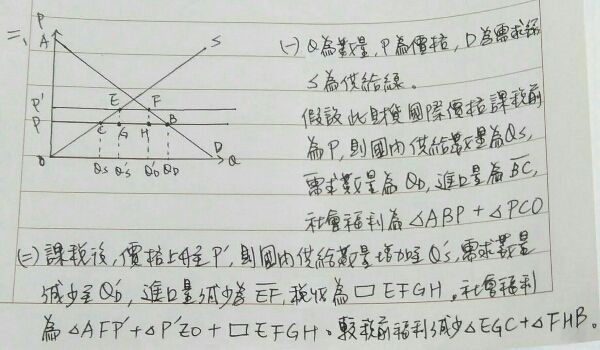 二、
P
A
S
P'
E
F
P
C
G
H
B
O
Qs
Q's
Q'D
QD
D
Q
(一) Q為數量,P為價格,D為需求線
S為供給線。
假設此財貨國際價格課稅前
為P,則國內供給數量為Qs,
需求數量為QD,進口量為BC,
社會福利為△ABP+△PCO
(二) 課稅後,價格上升至P',則國內供給數量增加至Q's,需求數量
減少至Q'D,進口量減少為EF,稅收為□EFGH。社會福利
為△AFP'+△P'ZO+□EFGH。較稅前福利減少△EGC+△FHB。